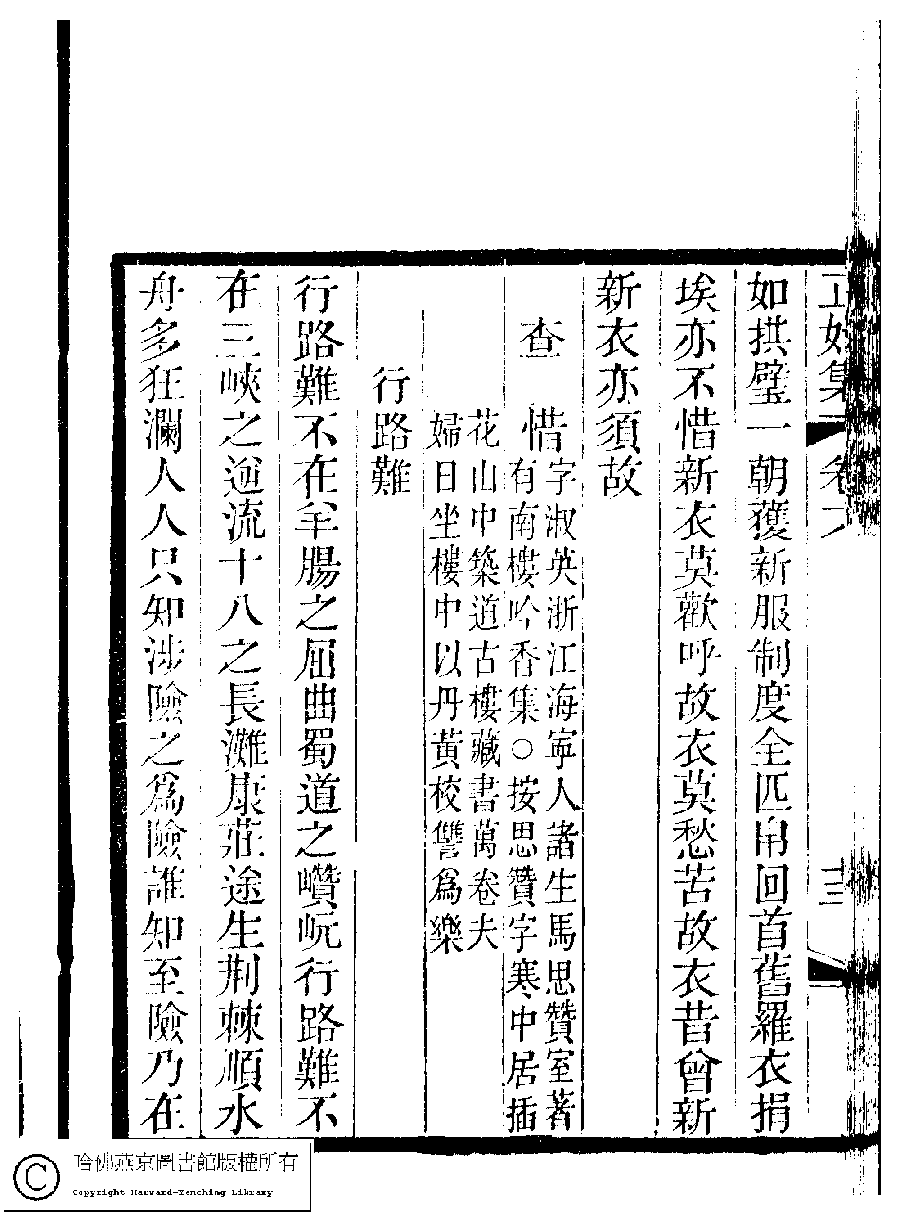 如拱璧一朝獲新服制度全匹帛回首舊羅衣捐
埃亦不惜新衣莫歡呼故衣莫愁苦故衣昔曾新
新衣亦須故
查惜字淑英浙江海寧人諸生馬思贊室著
有南樓吟香集○按思贊字寒中居插
花山中築道古樓藏書萬卷夫
婦日坐樓中以丹黃校讐爲樂
行路難
行路難不在羊腸之屈曲蜀道之巑岏行路難不
在三峽之迴流十八之長灘康莊途生荆棘順水
舟多狂瀾人人只知涉險之爲險誰知至險乃在
哈佛燕京圖書館版權所有
Copyright Harvard-Yenching Library